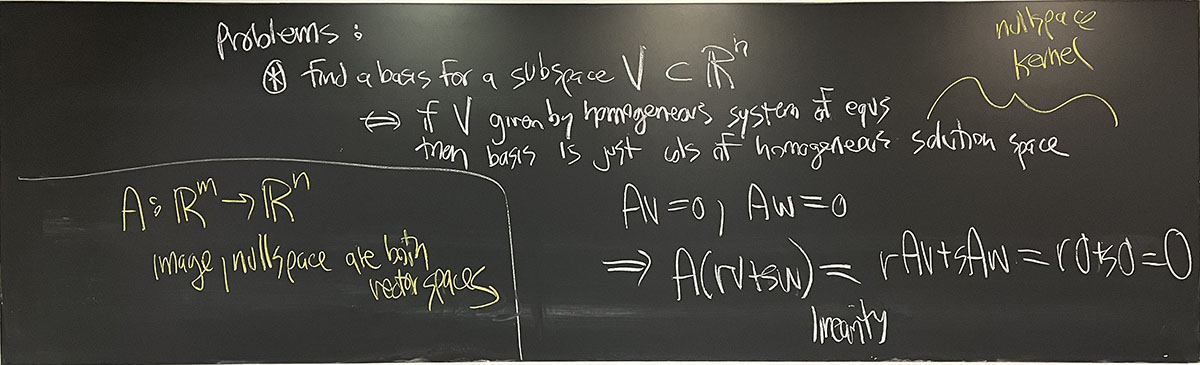 Problems:
⊛ find a basis for a subspace V ⊂ ℝⁿ
⇔ if V given by homogeneous system of eqns
then basis is just cols of homogeneous solution space
nullspace
kernel
A: ℝᵐ → ℝⁿ
image, nullspace are both
vector spaces
Av=0, Aw=0
⇒ A(rv+sw) = rAv+sAw = r0+s0=0
linearity